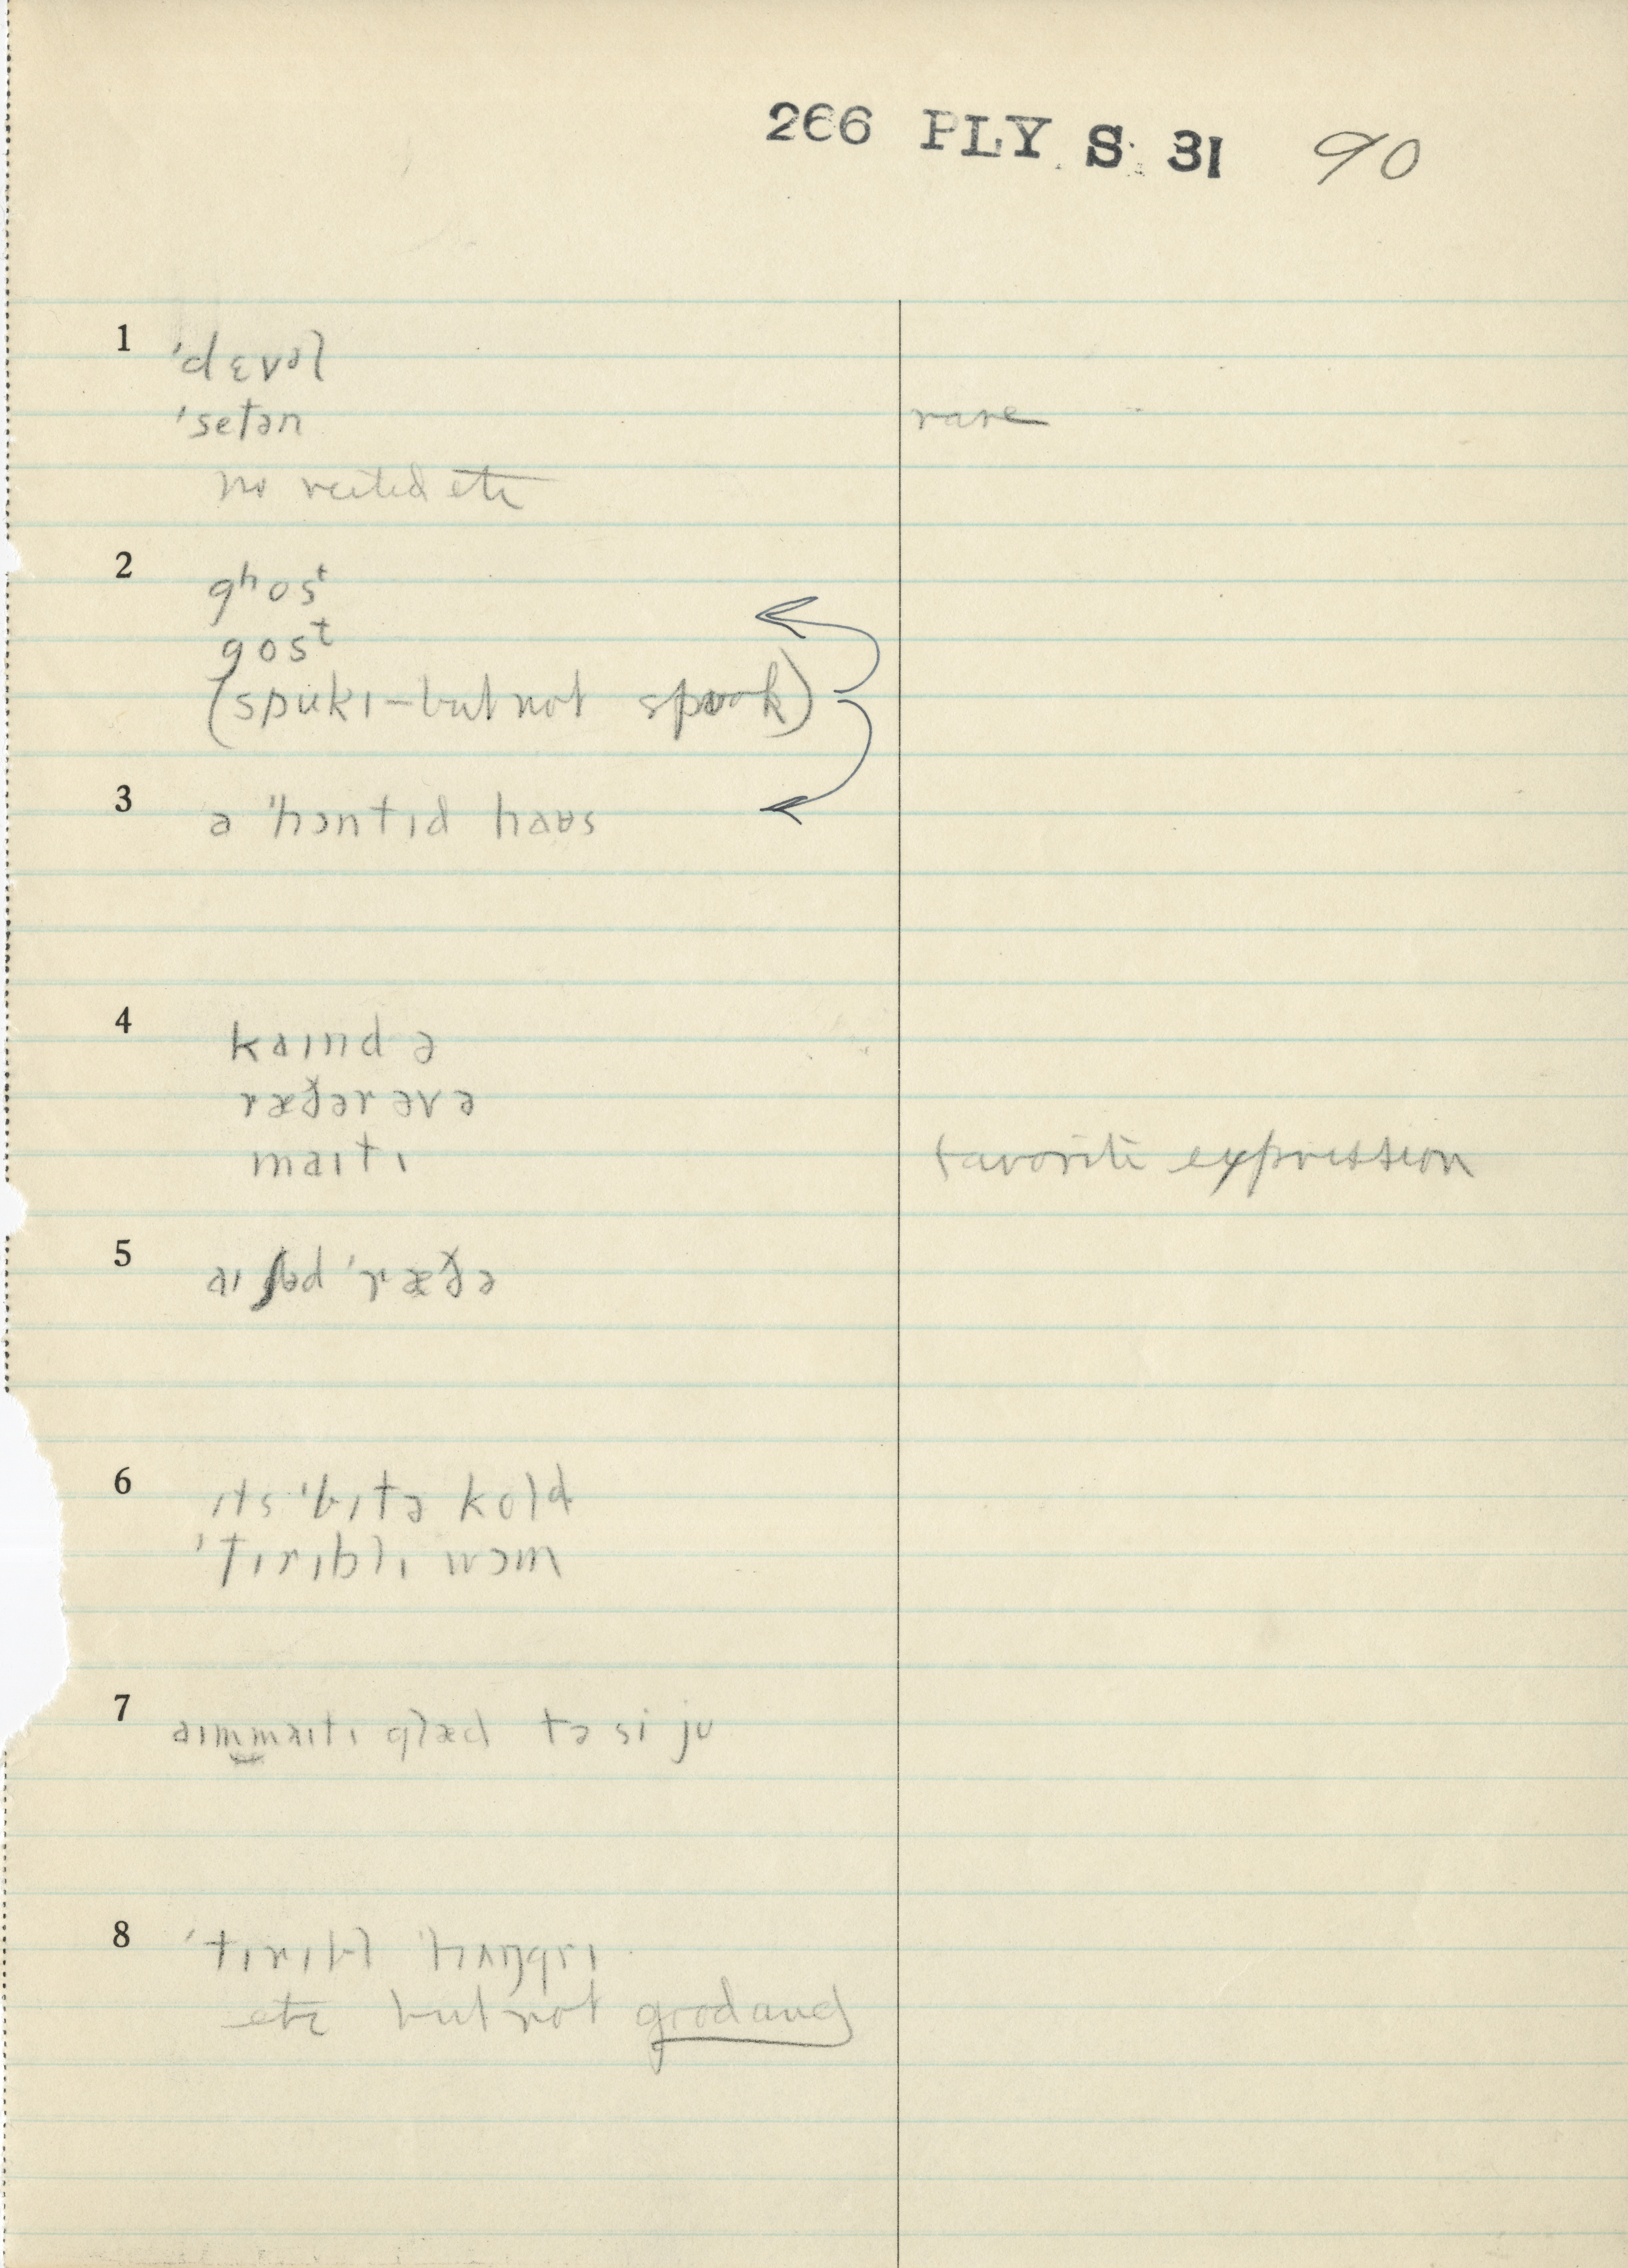 266 PLY. S. 31 90
1 ˈdɛvəl
ˈsetən rare
no
etc
2 gʰosᵗ
gosᵗ
(spukɪ – but not spook)
3 ə ˈhɔntɪd haʊs
4 kaɪnd ə
ræðər əv ə
maɪtɪ favorite expression
5 aɪ ʃəd ˈræðə
6 ɪts ˈbɪtə kold
ˈtɪrɪblɪ wɔm
7 aɪm maɪtɪ glæd tə si ju
8 ˈtɪrɪbl ˈhʌŋgrɪ
etc but not good and